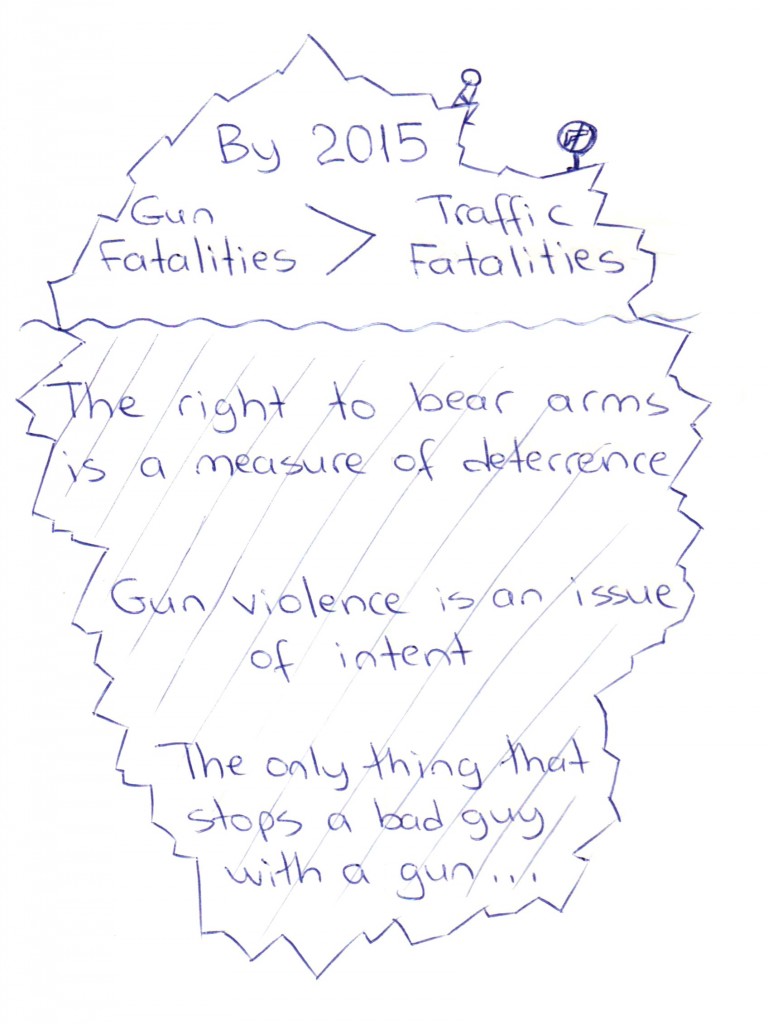 By 2015
Gun > Traffic
Fatalities Fatalities
The right to bear arms
is a measure of deterrence
Gun violence is an issue
of intent
The only thing that
stops a bad guy
with a gun...